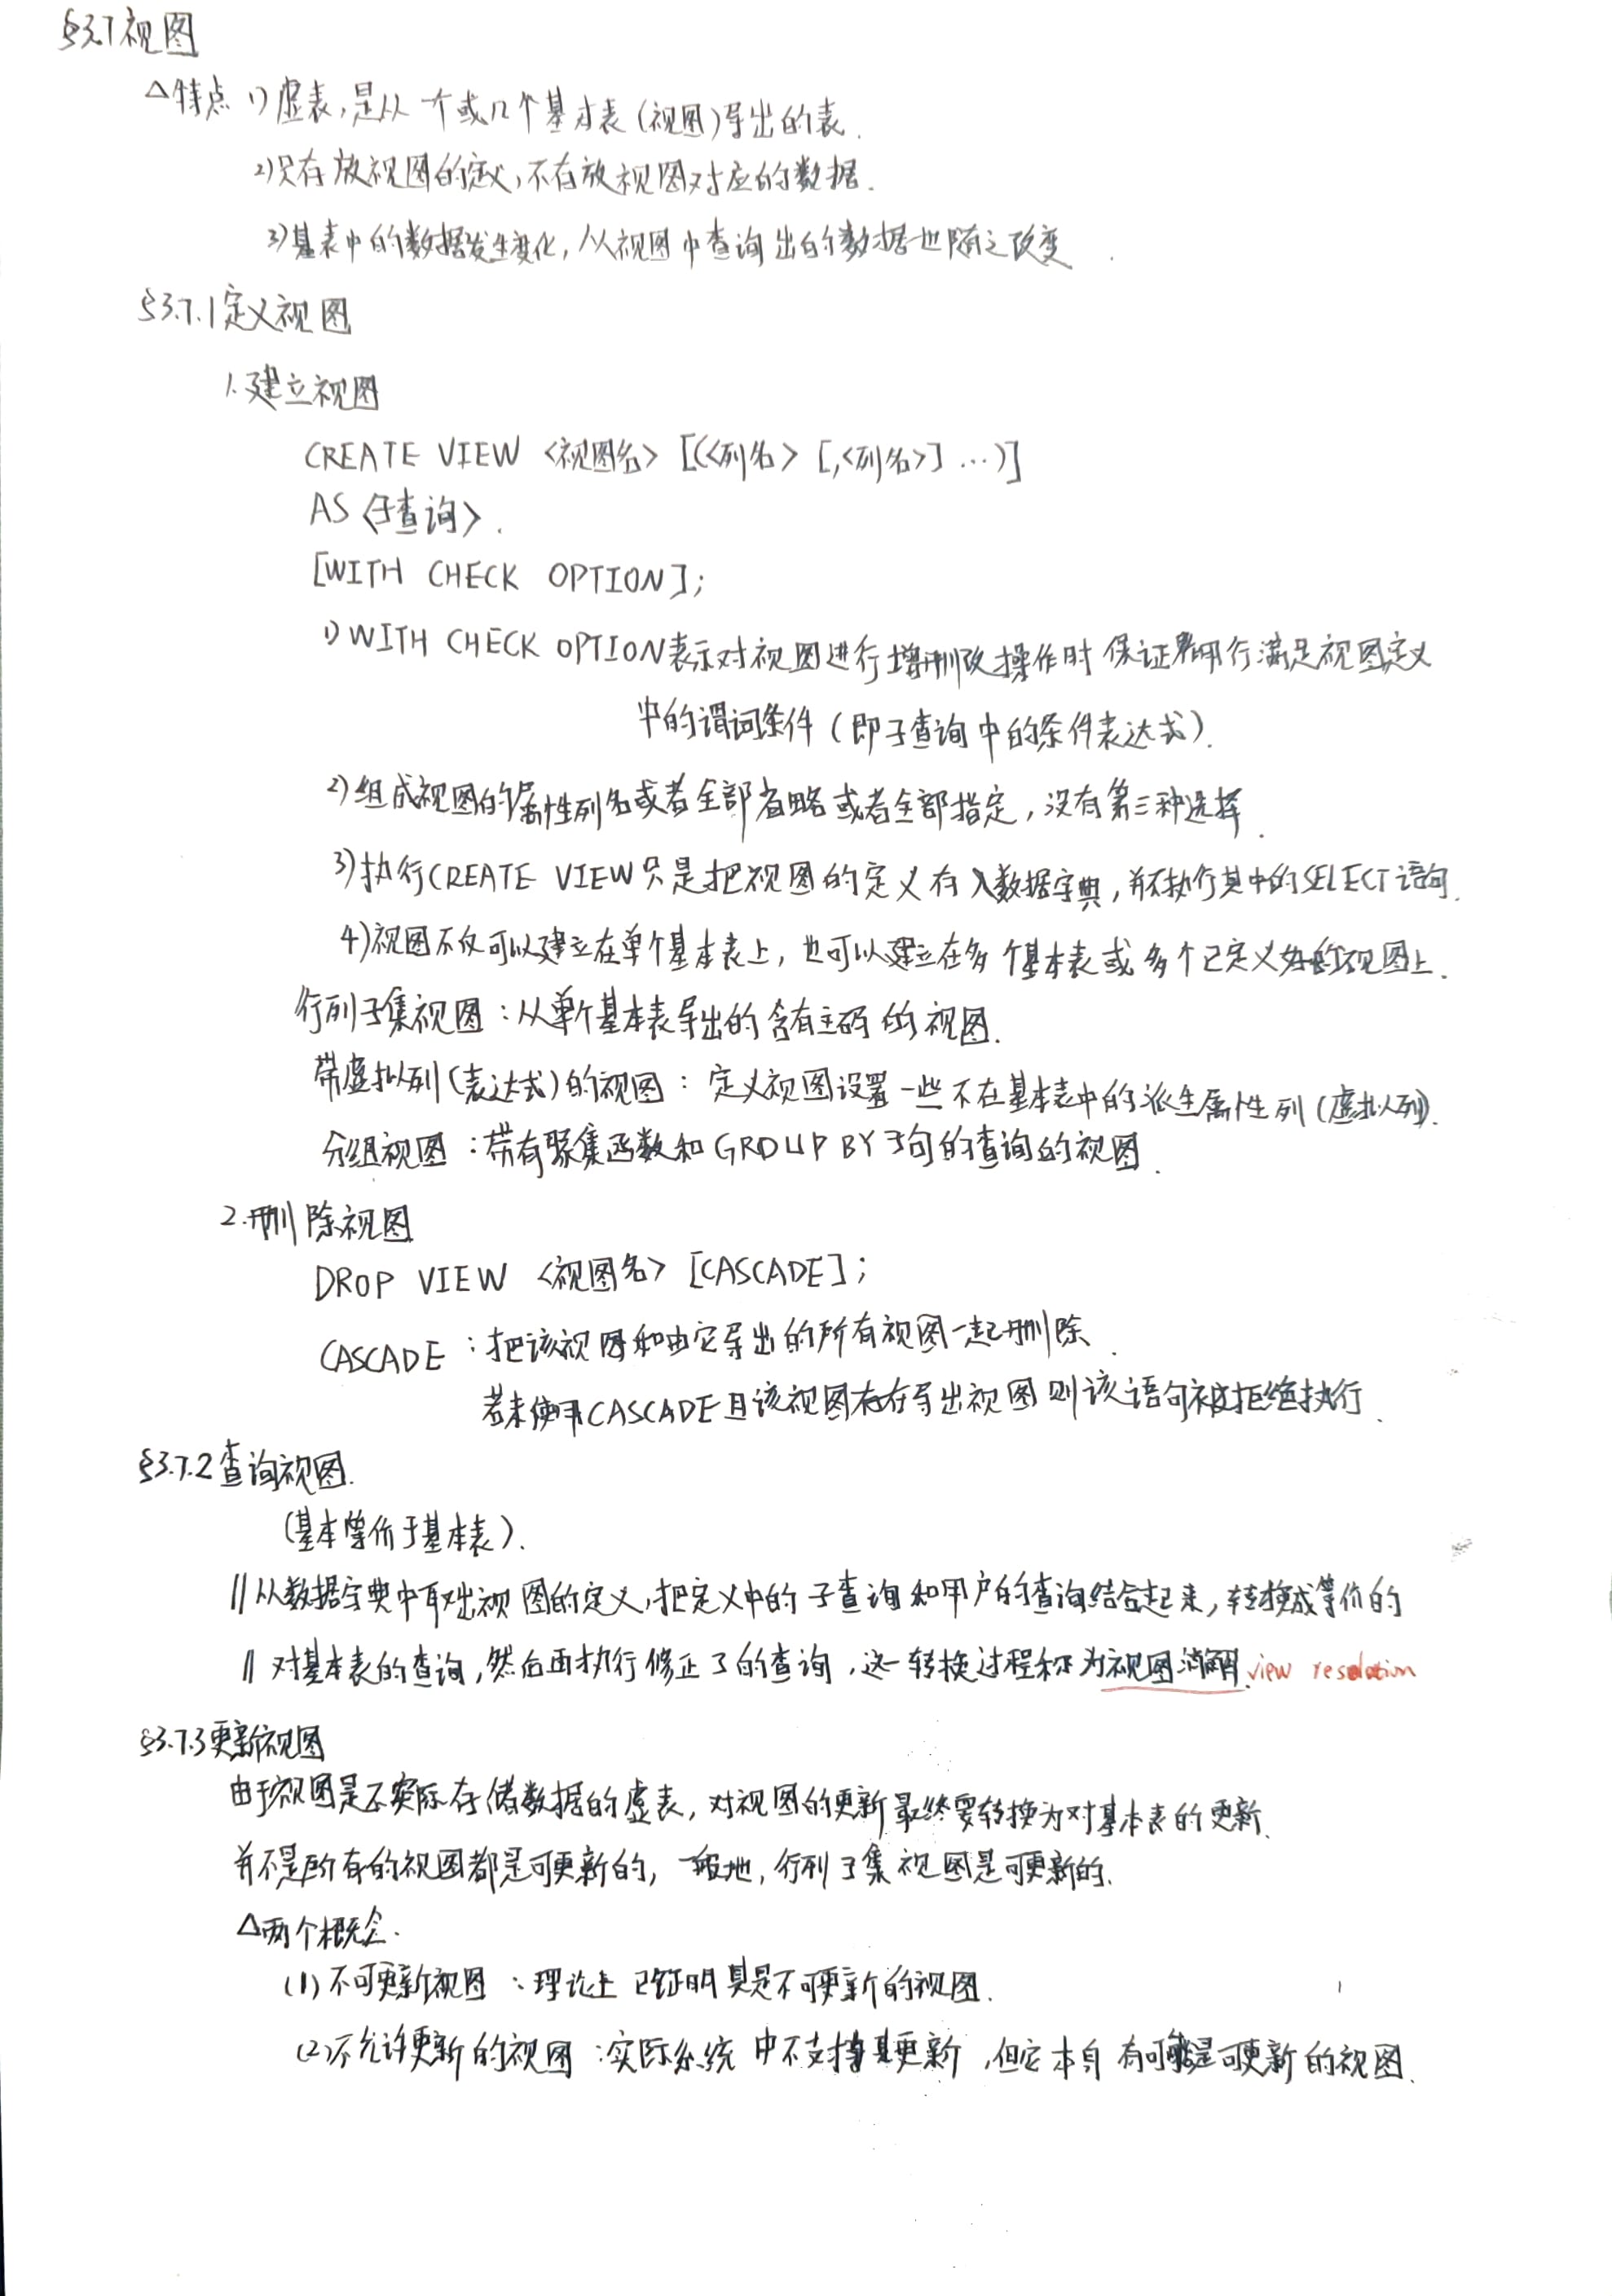 §3.7视图
△特点 1)虚表,是从一个或几个基本表(视图)导出的表.
2)只存放视图的定义,不存放视图对应的数据.
3)基表中的数据发生变化,从视图中查询出的数据也随之改变.
§3.7.1定义视图
1.建立视图
CREATE VIEW <视图名> [(<列名> [,<列名>] …)]
AS <子查询>.
[WITH CHECK OPTION];
1)WITH CHECK OPTION表示对视图进行增删改操作时保证行满足视图定义
中的谓词条件(即子查询中的条件表达式).
2)组成视图的属性列名或者全部省略或者全部指定,没有第三种选择.
3)执行CREATE VIEW只是把视图的定义存入数据字典,并不执行其中的SELECT语句.
4)视图不仅可以建立在单个基本表上,也可以建立在多个基本表或多个已定义好的视图上.
行列子集视图:从单个基本表导出的含有主码的视图.
带虚拟列(表达式)的视图:定义视图设置一些不在基本表中的派生属性列(虚拟列).
分组视图:带有聚集函数和GROUP BY子句的查询的视图.
2.删除视图
DROP VIEW <视图名> [CASCADE];
CASCADE:把该视图和由它导出的所有视图一起删除.
若未使用CASCADE且该视图存在导出视图则该语句被拒绝执行.
§3.7.2查询视图.
(基本等价于基本表).
||从数据字典中取出视图的定义,把定义中的子查询和用户的查询结合起来,转换成等价的
||对基本表的查询,然后再执行修正了的查询,这一转换过程称为视图消解.view resolution
§3.7.3更新视图
由于视图是不实际存储数据的虚表,对视图的更新最终要转换为对基本表的更新.
并不是所有的视图都是可更新的,一般地,行列子集视图是可更新的.
△两个概念.
(1)不可更新视图:理论上已证明其是不可更新的视图.
(2)不允许更新的视图:实际系统中不支持其更新,但它本身有可能是可更新的视图.